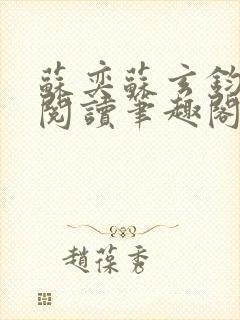 蘇奕蘇玄鈞
閱讀筆趣閣
趙葆秀